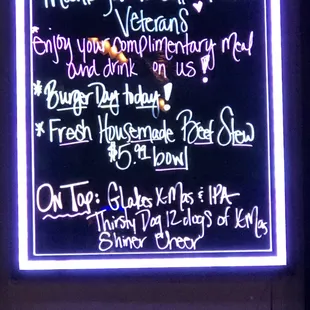 Veterans
*Enjoy your complimentary meal
and drink on us!
*Burger Day today!
*Fresh Housemade Beef Stew
$5.99 bowl
On Tap: Glakes X-Mas & IPA
Thirsty Dog 12 dogs of X-Mas
Shiner Cheer